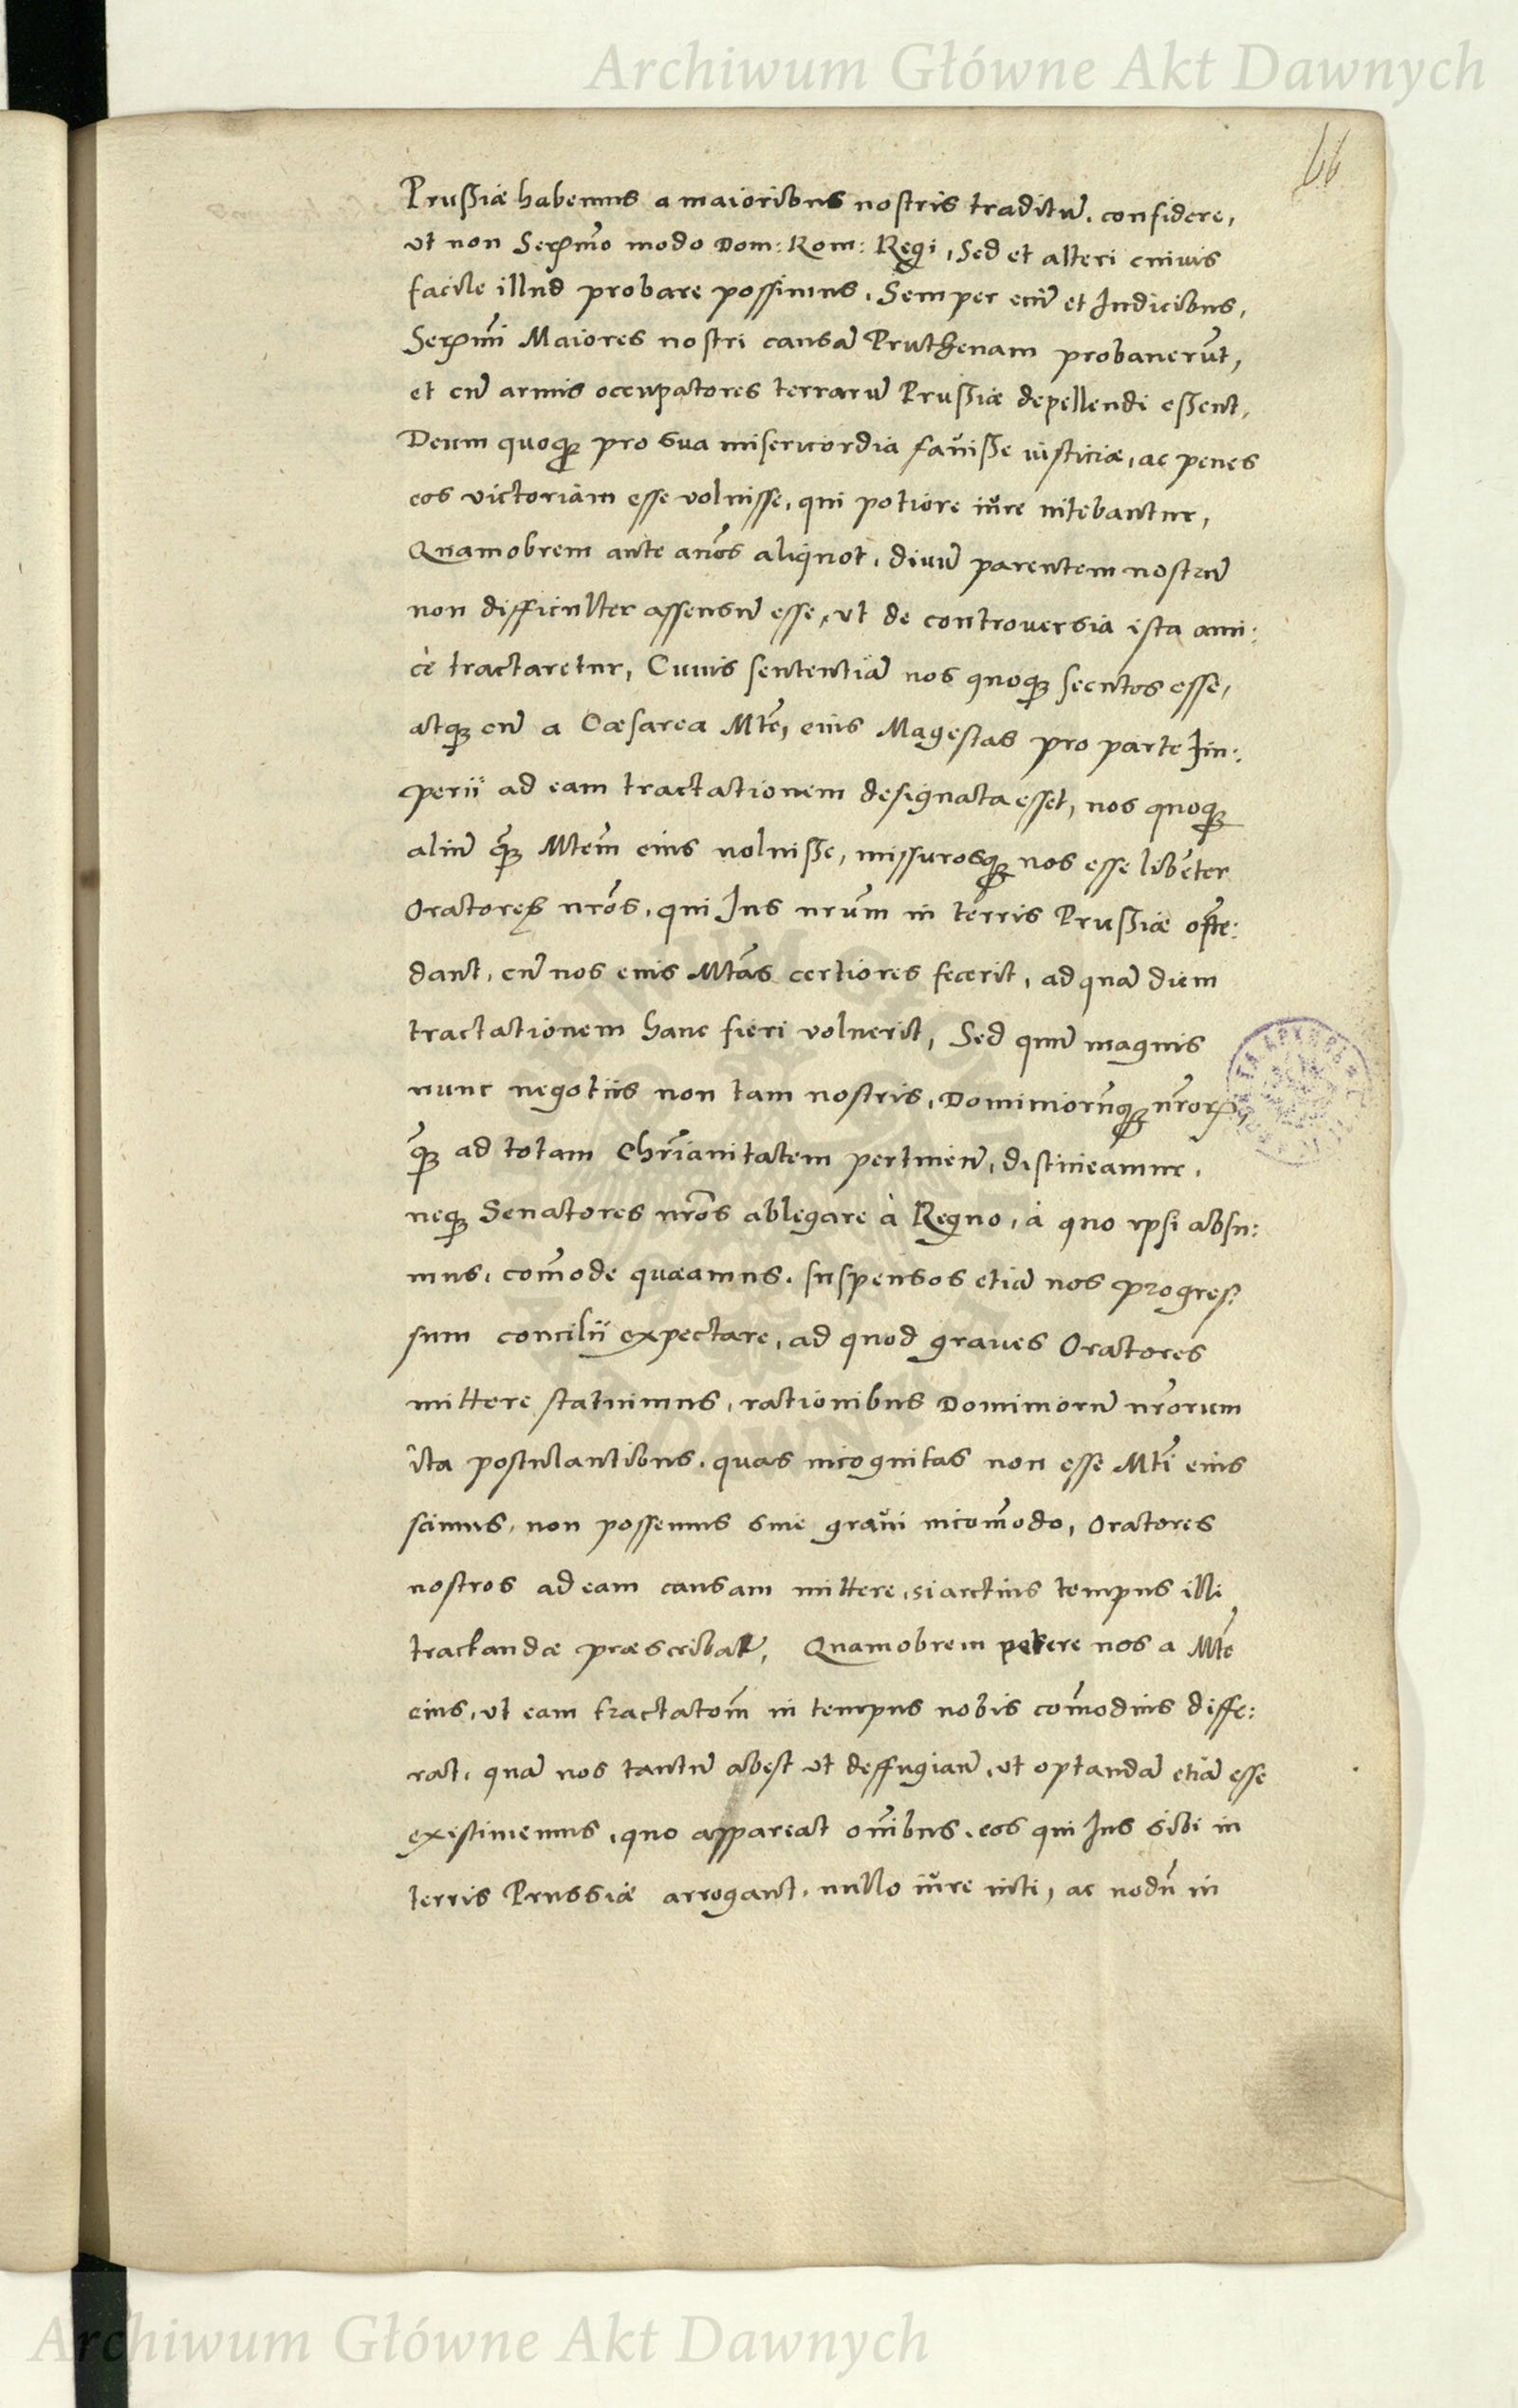 Archiwum Główne Akt Dawnych
66
Prussiæ habemus a maioribus nostris traditũ, confidere,
ut non Serꝑmo modo Dom: Rom: Regi, Sed et alteri cuiuis
facile illud probare possimus. Semper eniȝ et Iudicibus,
Serꝑmi Maiores nostri causã Pruthenam probauerũt,
et cũ armis occupatores terrarũ Prussiæ depellendi essent,
Deum quoqȝ pro sua misericordia fauisse iusticiæ, ac penes
eos victoriam esse voluisse, qui potiore iŭre nitebantur,
Quamobrem ante annos aliquot, diuũ parentem nostrũ
non difficulter assensũ esse, ut de controuersia ista ami:
cè tractaretur, Cuius sententiã nos quoqȝ secutos esse,
atqȝ cũ a Cæsarea Mte, eius Magestas pro parte Im:
perii ad eam tractationem designata esset, nos quoqȝ
aliũ qȝ̃ Mtem eius noluisse, missurosqȝ nos esse libẽter
Oratores nr̃os, qui Ius nr̃um in terris Prussiæ ostẽ:
dant, cũ nos eius Mtas certiores fecerit, ad quã diem
tractationem hanc fieri voluerit, Sed quũ magnis
nunc negotiis non tam nostris, Dominiorũqȝ nr̃orꝝ,
qȝ̃ ad totam Chr̃ianitatem pertinẽtȝ, distineamur,
neqȝ Senatores nr̃os ablegare à Regno, à quo ipsi absu:
mus, com̃ode queamus, suspensos etiã nos progres:
sum concilii expectare, ad quod graues Oratores
mittere statuimus, rationibus Dominiorũ nr̃orum
ita postulantibus, quas incognitas non esse Mti eius
scimus, non possemus sine graŭi incom̃odo, Oratores
nostros ad eam causam mittere, si arctius tempus illi
tractandæ præscribatur, Quamobrem petere nos a Mte
eius, ut eam tractatom̃ in tempus nobis com̃odius diffe:
rat, quã nos tantũ abest ut deffugiam̃, ut optandã etiã esse
existimemus, quo appareat om̃ibus, eos qui Ius sibi in
terris Prussiæ arrogant, nullo iŭre niti, ac nodũ in
Archiwum Główne Akt Dawnych